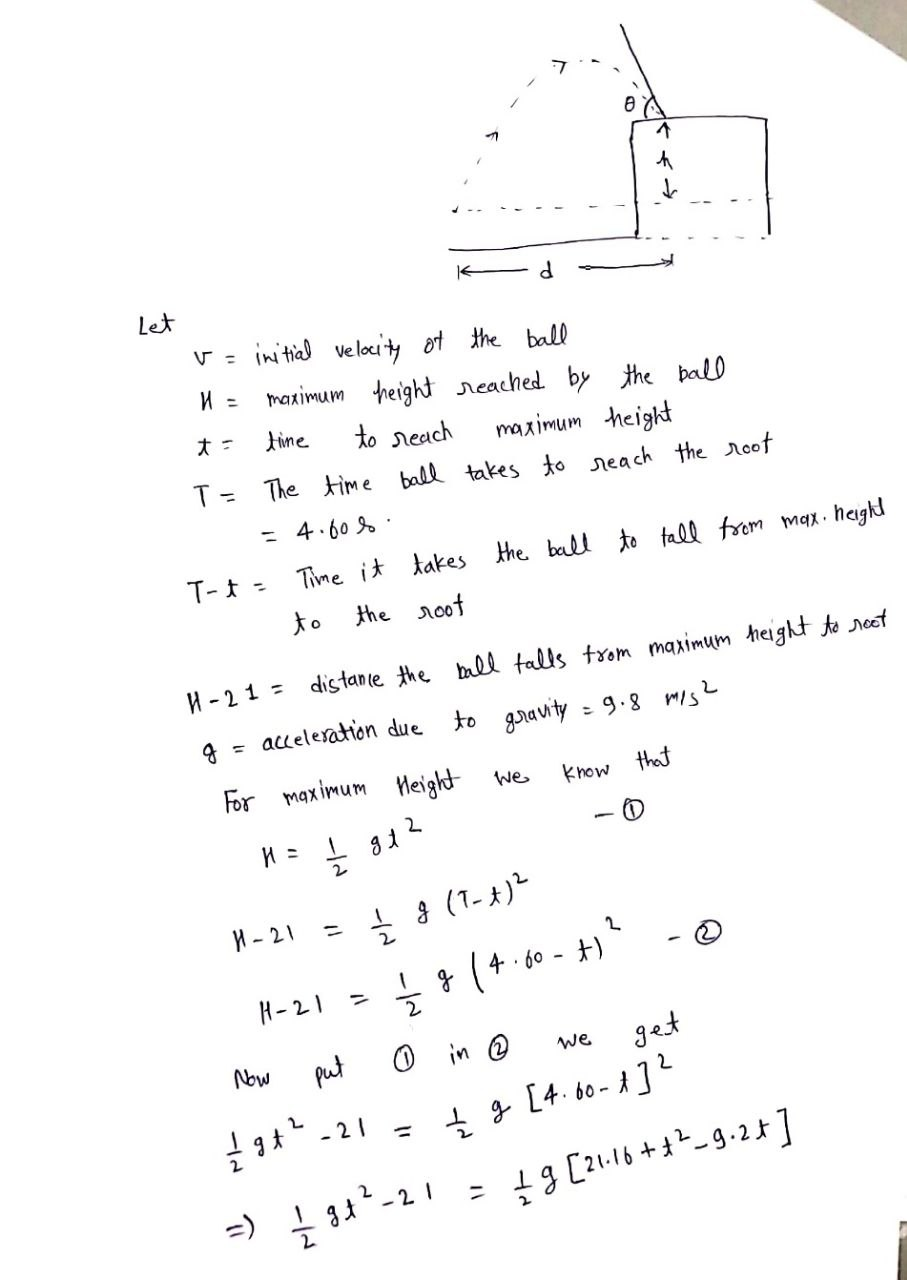 θ
h
d
Let
v = initial velocity of the ball
H = maximum height reached by the ball
t = time to reach maximum height
T = The time ball takes to reach the roof
= 4.60 s.
T-t = Time it takes the ball to fall from max. height
to the roof
H-21 = distance the ball falls from maximum height to roof
g = acceleration due to gravity = 9.8 m/s²
For maximum Height we know that
H = 1/2 gt² - ①
H-21 = 1/2 g (T-t)²
H-21 = 1/2 g (4.60-t)² - ②
Now put ① in ② we get
1/2 gt² - 21 = 1/2 g [4.60-t]²
=) 1/2 gt² - 21 = 1/2 g [21.16 + t² - 9.2t]